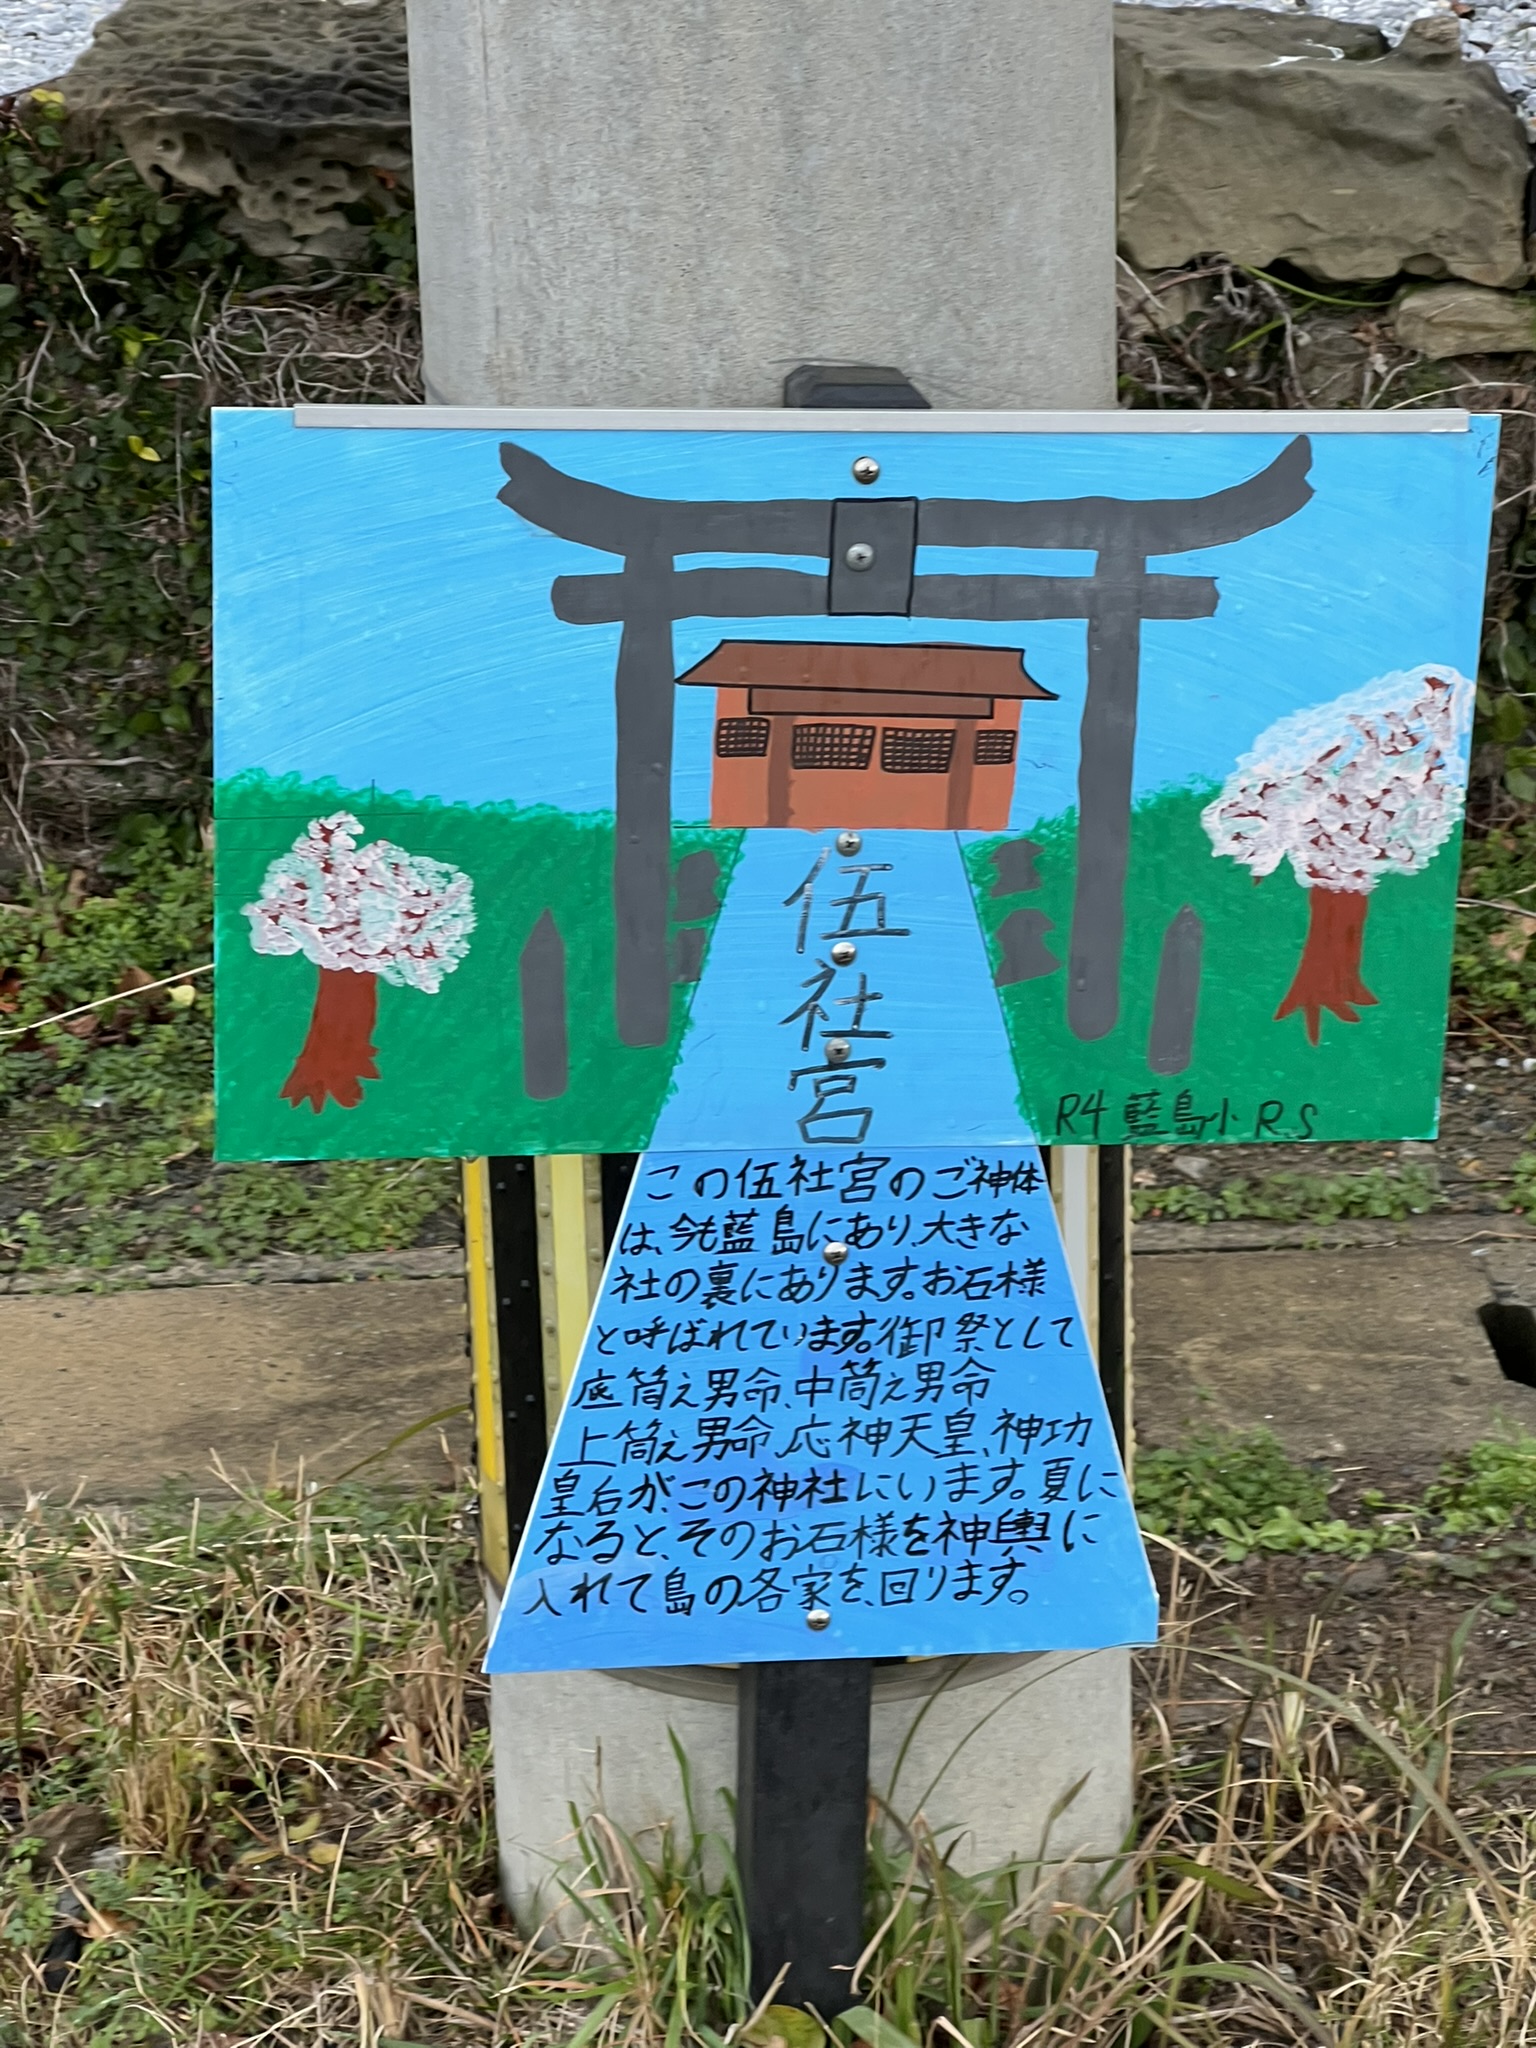 伍社宮
R4 藍島小 R.S
この伍社宮のご神体
は、今も藍島にあり、大きな
社の裏にあります。お石様
と呼ばれています。御祭として
底筒え男命、中筒え男命
上筒え男命、応神天皇、神功
皇后が、この神社にいます。夏に
なると、そのお石様を神輿に
入れて島の各家を、回ります。